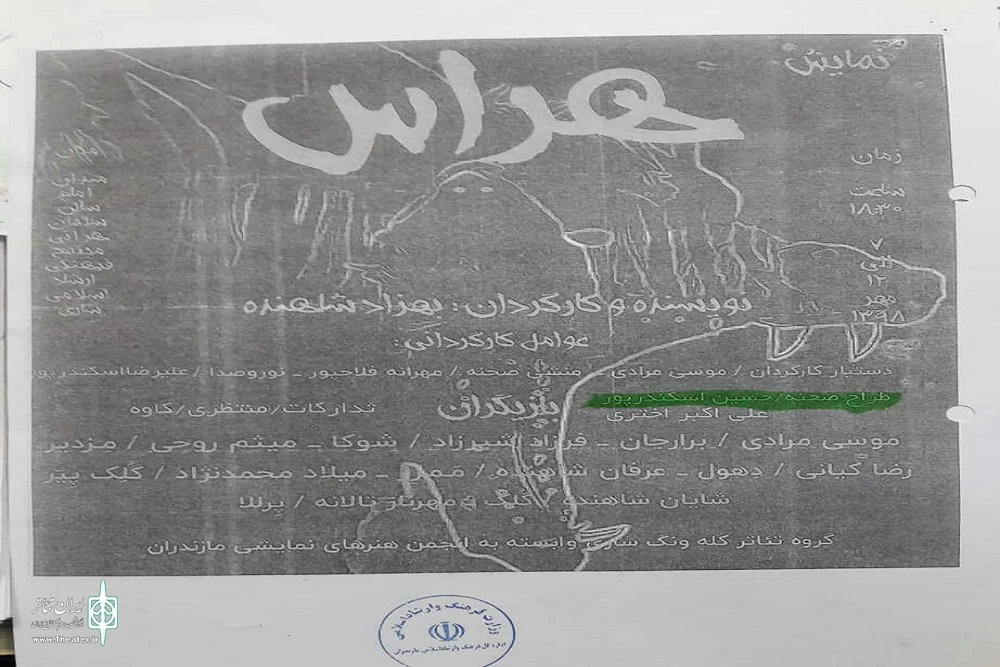 نمایش
هراس
زمان
ساعت
۱۸:۳۰
۷
الی
۱۲
مهر
۱۳۹۸
سالن
فرهنگی
ارشاد
اسلامی
ساری
نویسنده و کارگردان: بهزاد شاهنده
عوامل کارگردانی:
دستیار کارگردان / موسی مرادی / منشی صحنه / مهرانه فلاحپور - نوروصدا / علیرضااسکندرپور
طراح صحنه/حسین اسکندرپور
علی اکبر اختری
تدارکات/منتظری/کاوه
بازیگران
موسی مرادی / برارجان - فرزاد شیرزاد / شوکا - میثم روحی / مزدبیر
رضا گیانی / دهول - عرفان شاهنده / - میلاد محمدنژاد / گلک پیر
شایان شاهنده / گلک - مهرناز تالانه / پرللا
گروه تئاتر کله ونگ ساری وابسته به انجمن هنرهای نمایشی مازندران
وزارت فرهنگ و ارشاد اسلامی
اداره کل فرهنگ و ارشاد اسلامی مازندران
ایران تئاتر
www.theater.ir